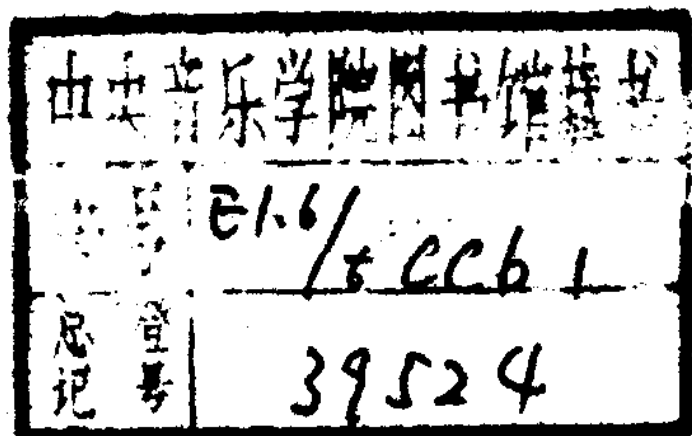 中央音乐学院图书馆藏书
书号 E1.6/tCCb1
总登
记号 39524